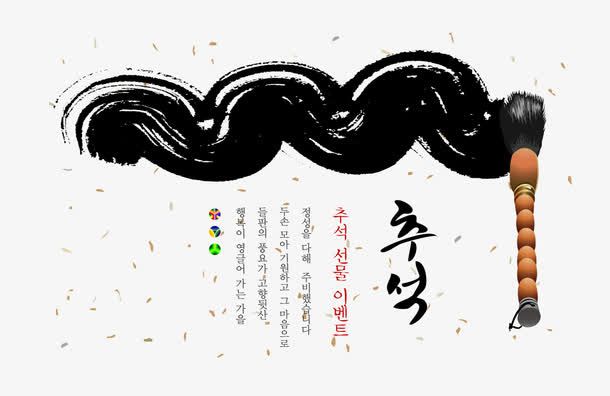 추석
추석 선물 이벤트
정성을 다해 주비했습니다
두손 모아 기원하고 그 마음으로
들판의 풍요가 고향뒷산
행복이 영글어 가는 가을